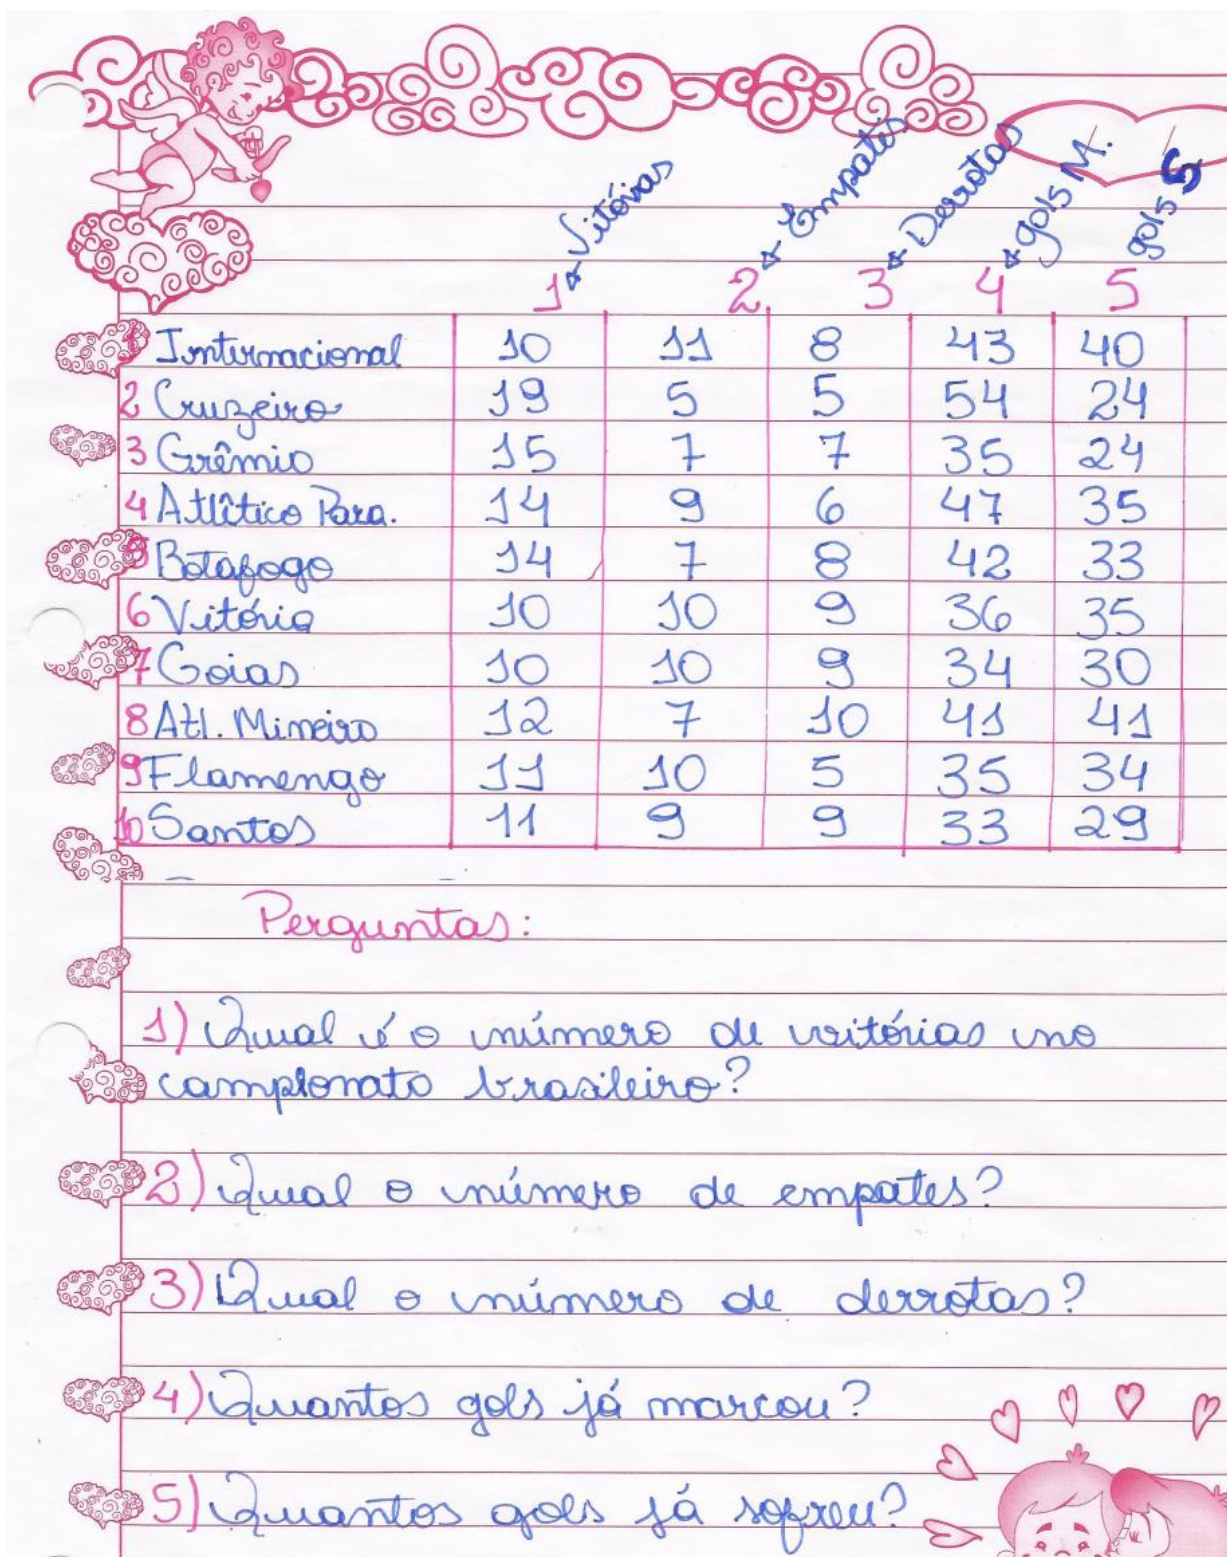 Vitórias Empates Derrotas gols M. gols S
1 2. 3 4 5
1 Internacional 10 11 8 43 40
2 Cruzeiro 19 5 5 54 24
3 Grêmio 15 7 7 35 24
4 Atlético Para. 14 9 6 47 35
5 Botafogo 14 7 8 42 33
6 Vitória 10 10 9 36 35
7 Goias 10 10 9 34 30
8 Atl. Mineiro 12 7 10 41 41
9 Flamengo 11 10 5 35 34
10 Santos 11 9 9 33 29
Perguntas:
1) Qual é o número de vitórias no
campeonato brasileiro?
2) Qual o número de empates?
3) Qual o número de derrotas?
4) Quantos gols já marcou?
5) Quantos gols já sofreu?